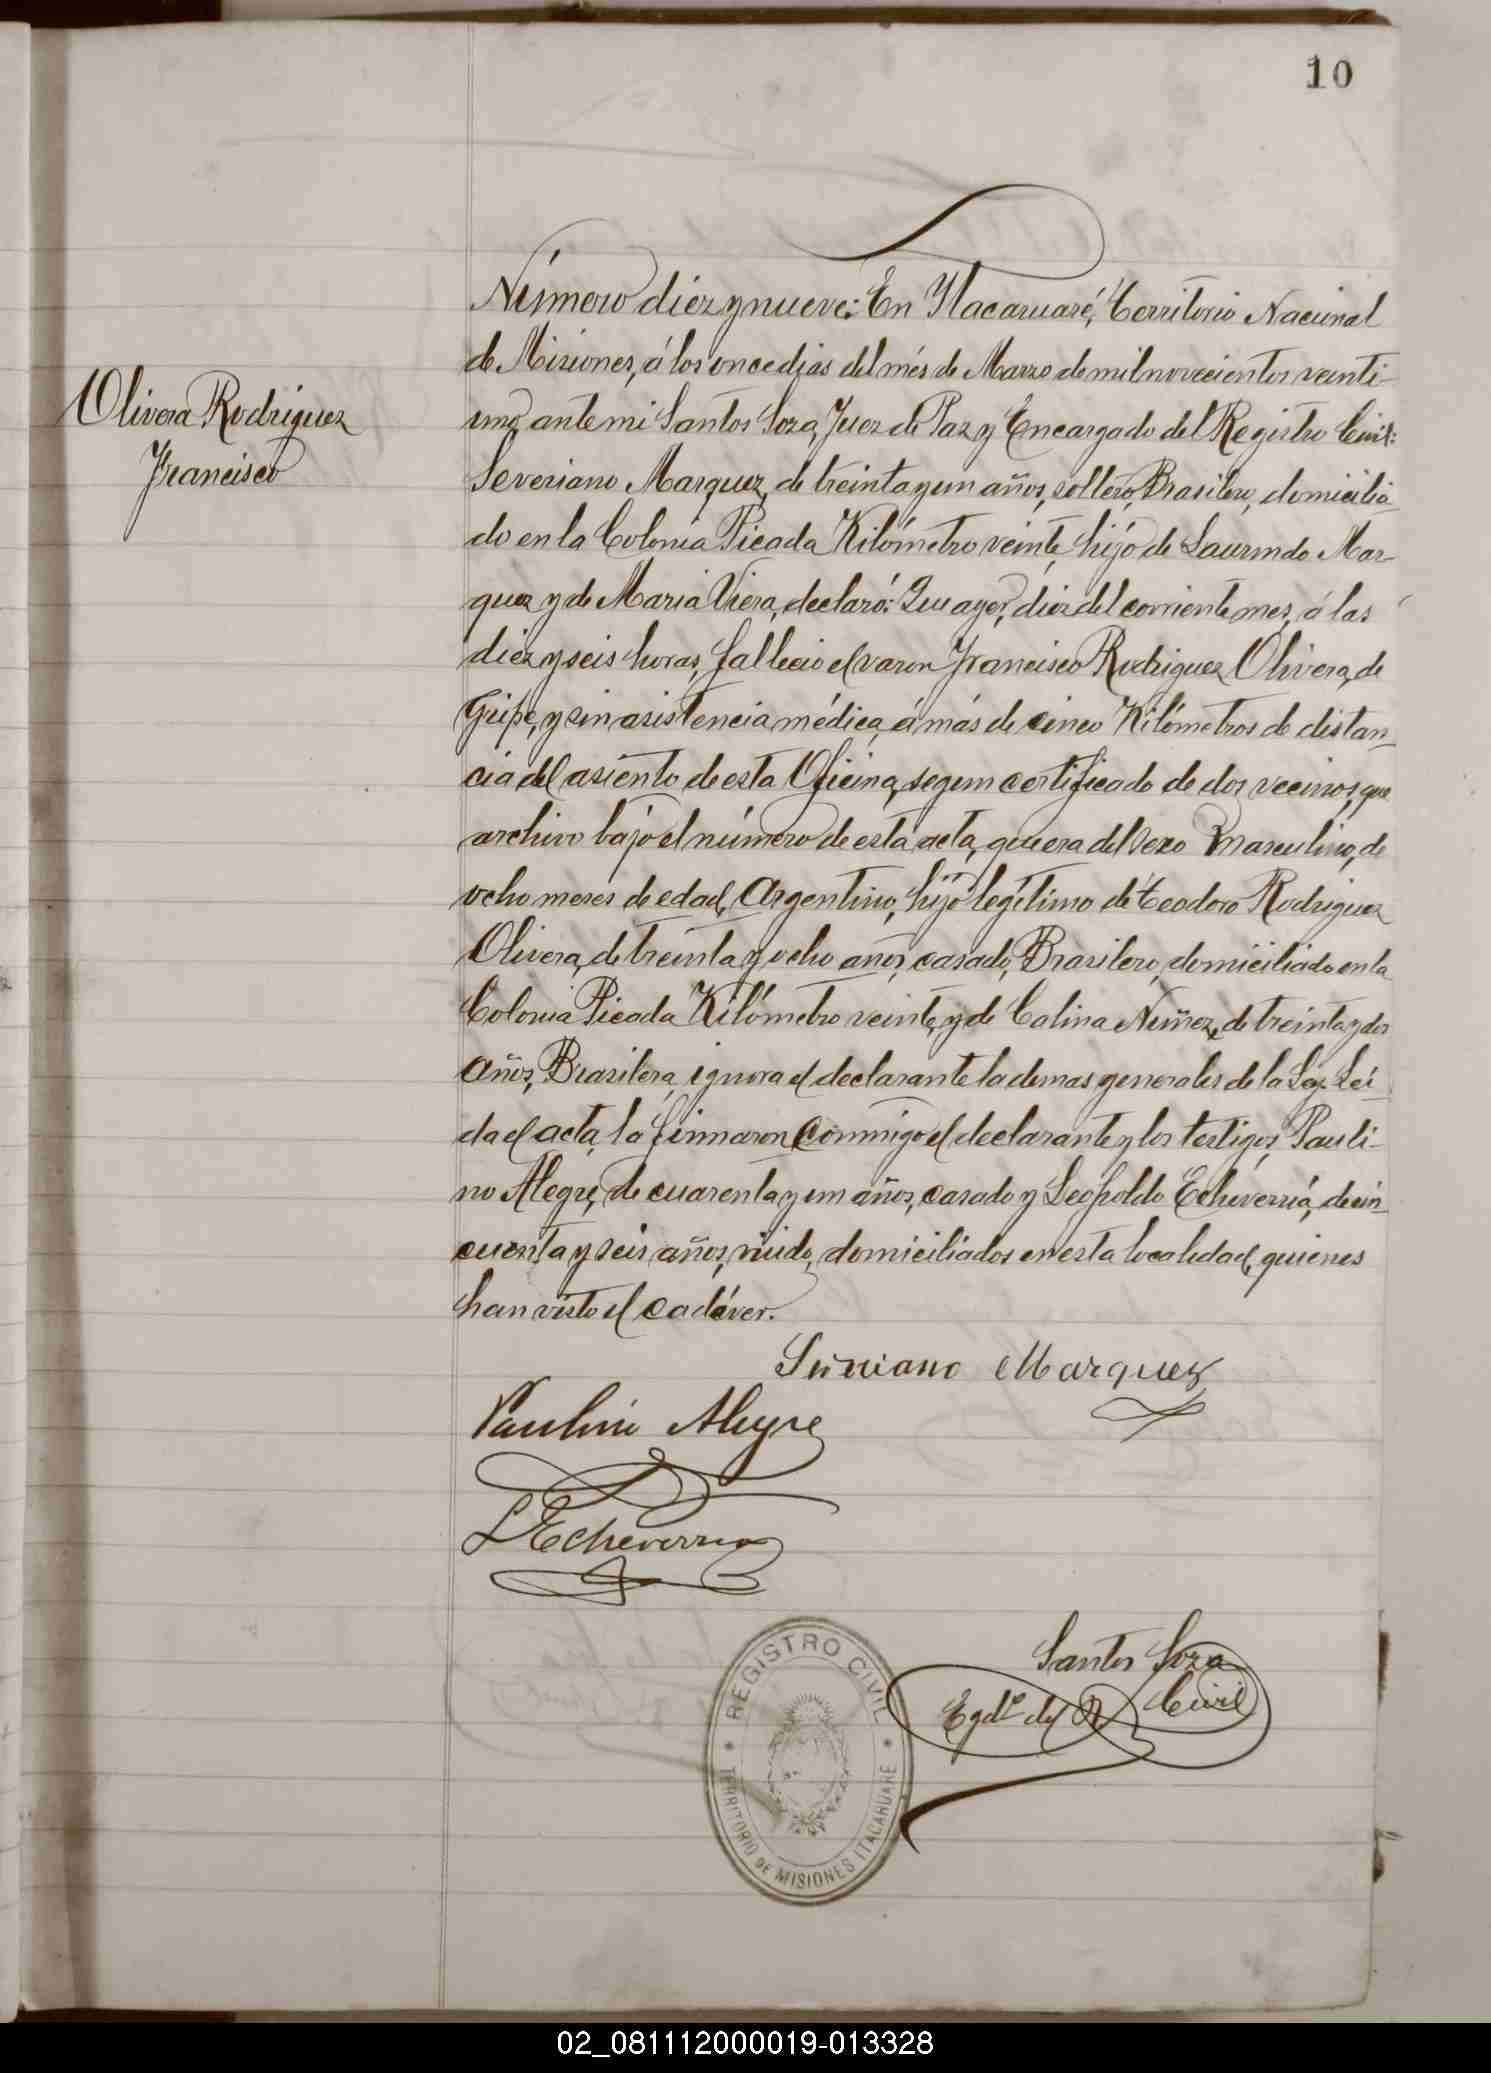 10
Número diez y nueve: En Ytacaruaré, Territorio Nacional
de Misiones, á los once dias del més de Marzo de mil novecientos veinti-
uno, ante mi Santos Soza, Juez de Paz y Encargado del Registro Civil:
Olivera Rodriguez
Francisco
Severiano Marquez, de treinta y un años, soltero, Brasilero, domicilia-
do en la Colonia Picada Kilómetro veinte, hijo de Laurindo Mar-
quez y de Maria Viera, declaró: Que ayer, diez del corriente mes, á las
diez y seis horas, fallecio el varon Francisco Rodriguez Olivera, de
Gripe, y sin asistencia médica, á más de cinco Kilómetros de distan-
cia del asiento de esta Oficina, segun certificado de dos vecinos, que
archivo bajo el número de esta acta, que era del sexo masculino, de
ocho meses de edad, Argentino, hijo legítimo de Teodoro Rodriguez
Olivera, de treinta y ocho años, casado, Brasilero, domiciliado en la
Colonia Picada Kilómetro veinte, y de Calina Nuñez, de treinta y dos
años, Brasilera, ignora el declarante la demas generales de la Ley. Lei-
da el acta, la firmaron conmigo el declarante y los testigos, Pauli-
no Alegre, de cuarenta y un años, casado y Leopoldo Echeverriá, de cin-
cuenta y seis años, viudo, domiciliados en esta localidad, quienes
han visto el cadáver.
Severiano Marquez
Paulino Alegre
L Echeverria
Santos Soza
Egdo del R. Civil
REGISTRO CIVIL
TERRITORIO DE MISIONES ITACARUARE
02_081112000019-013328